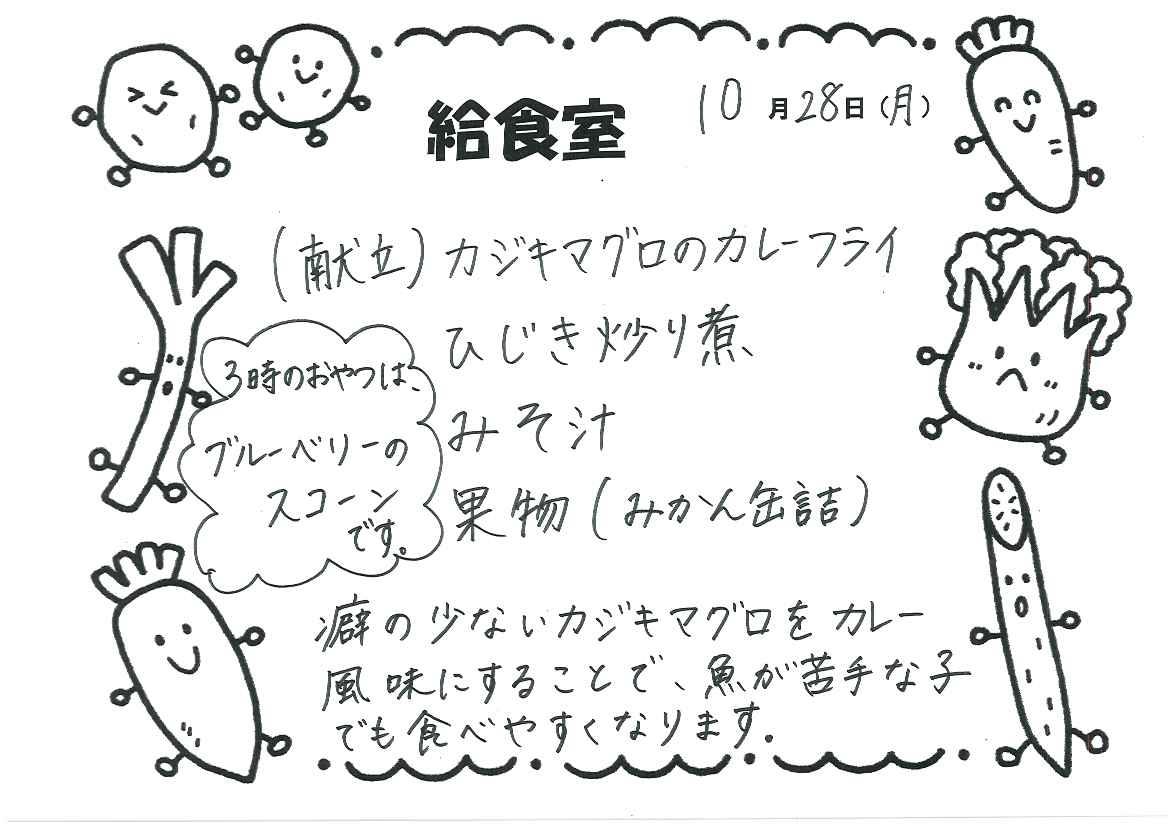 給食室
10月28日(月)
(献立)カジキマグロのカレーフライ
ひじき炒り煮
みそ汁
果物(みかん缶詰)
3時のおやつは、
ブルーベリーの
スコーン
です。
癖の少ないカジキマグロをカレー
風味にすることで、魚が苦手な子
でも食べやすくなります。